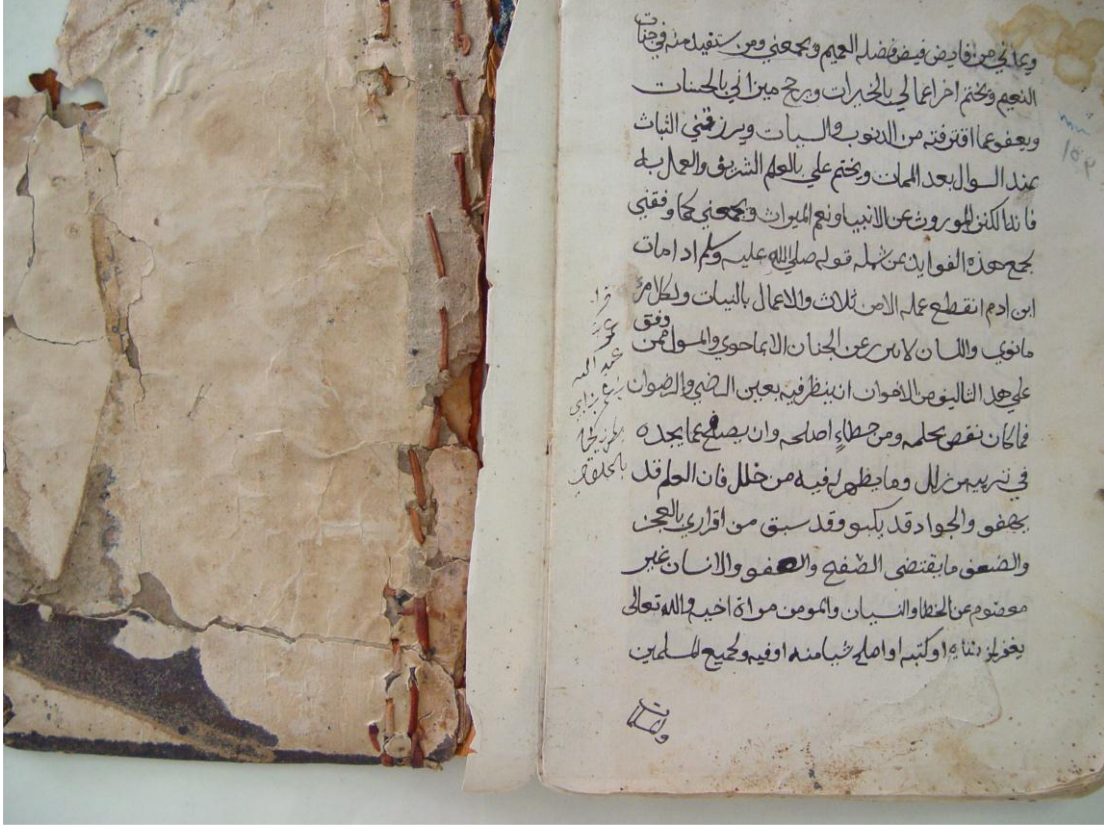 ويعاملني من فايض فيض فضله العميم ويجمعني ومن ستفيد منه في جنات
النعيم ويختم اخر اعمالي بالخيرات ويرجح ميزاني بالحسنات
ويعفو عما اقترفته من الذنوب والسيات ويرزقني الثبات
عند السوال بعد الممات ويختم علي بالعلم الشريف والعمل به
فانه الكنز الموروث عن الانبيا ونعم الميراث ويجمعني كما وفقني
لجمع هذه الفوايد ممن شمله قوله صلى الله عليه وسلم اذا مات
ابن ادم انقطع عمله الا من ثلاث والاعمال بالنيات ولكل امرئ
مانوى واللسان لا من عن الجنان الا بما حوى والمسول ممن وقف
على هذا التاليف من الاخوان ان ينظر فيه بعين الرضى والرضوان
فما كان نقص بحلمه ومن خطاء اصلحه وان يصلح بما يجده
في من زلل وما يظهر له فيه من خلل فان العلم قد
يهفو والجواد قد يكبو وقد سبق من اقراري بالعجز
والضعف ما يقتضى الصفح والعفو والانسان غير
معصوم عن الخطا والنسيان والمومن مراة اخيه والله تعالى
يغفر لمن او كتبه او اصلح شيا منه او فيه ولجميع المسلمين
والمسلمات
عبد الله
١٥٩